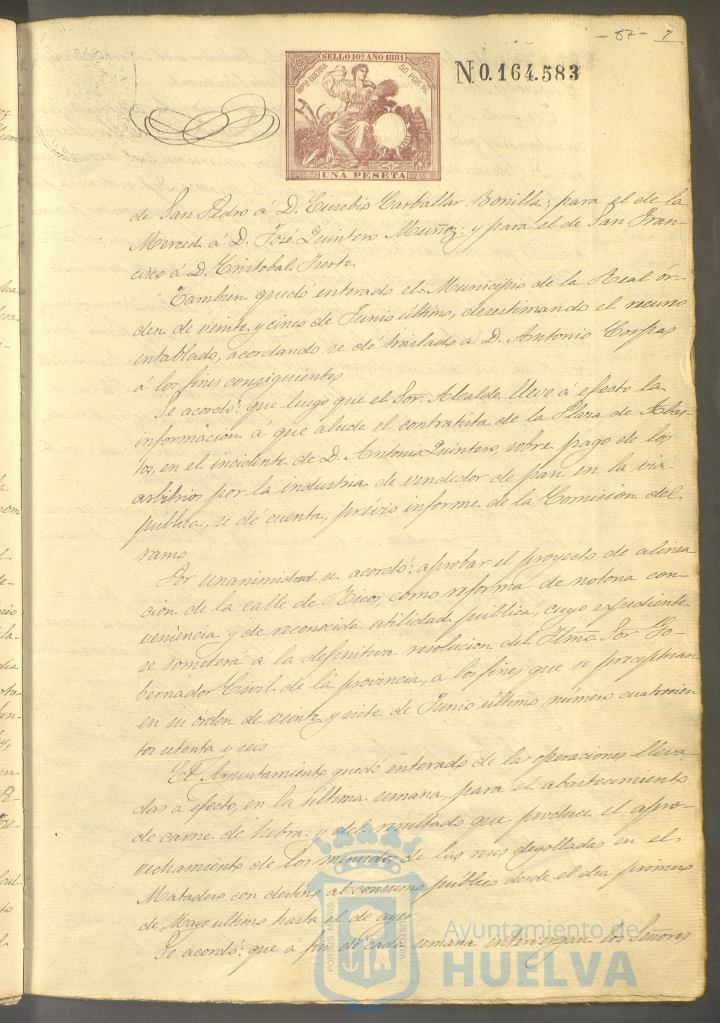 - 67 - 7
SELLO 10º AÑO 1881
IMPTO GUERRA 50 POR 100
UNA PESETA
N 0.164.583
de San Pedro á D. Eusebio Carballar Bonilla; para el de la
Merced á D. José Quintero Muñoz; y para el de San Fran-
cisco á D. Cristobal Jierte.
Tambien quedó enterado el Municipio de la Real ór-
den de veinte y cinco de Junio último, desestimando el recurso
entablado, acordando se dé traslado á D. Antonio Corpas
á los fines consiguientes
Se acordó: que luego que el Sor. Alcalde lleve á efecto la
informacion á que alude el contratista de la Plaza de Abas-
tos, en el incidente de D. Antonio Quintero, sobre pago de los
arbitrios por la industria de vendedor de pan en la via
pública, se dé cuenta, prévio informe de la Comision del
ramo.
Por unanimidad se acordó: aprobar el proyecto de alinea
cion de la calle de Ricos, como reforma de notoria con-
veniencia y de reconocida utilidad pública, cuyo expediente
se someterá á la definitiva resolucion del Iltmo Sor Go-
bernador Civil de la provincia, a los fines que se preceptuan
en su órden de veinte y siete de Junio último número cuatrocien
tos setenta y seis
El Ayuntamiento quedó enterado de las operaciones lleva-
das a efecto, en la última semana, para el abastecimiento
de carne de hebra y del resultado que produce el apro-
vechamiento de los menudos de las reses degolladas en el
Matadero con destino al consumo público desde el dia primero
de Mayo ultimo hasta el de ayer
Se acordó: que a fin de cada semana intervengan los Señores
PORTUS MARIS
Ayuntamiento de
HUELVA